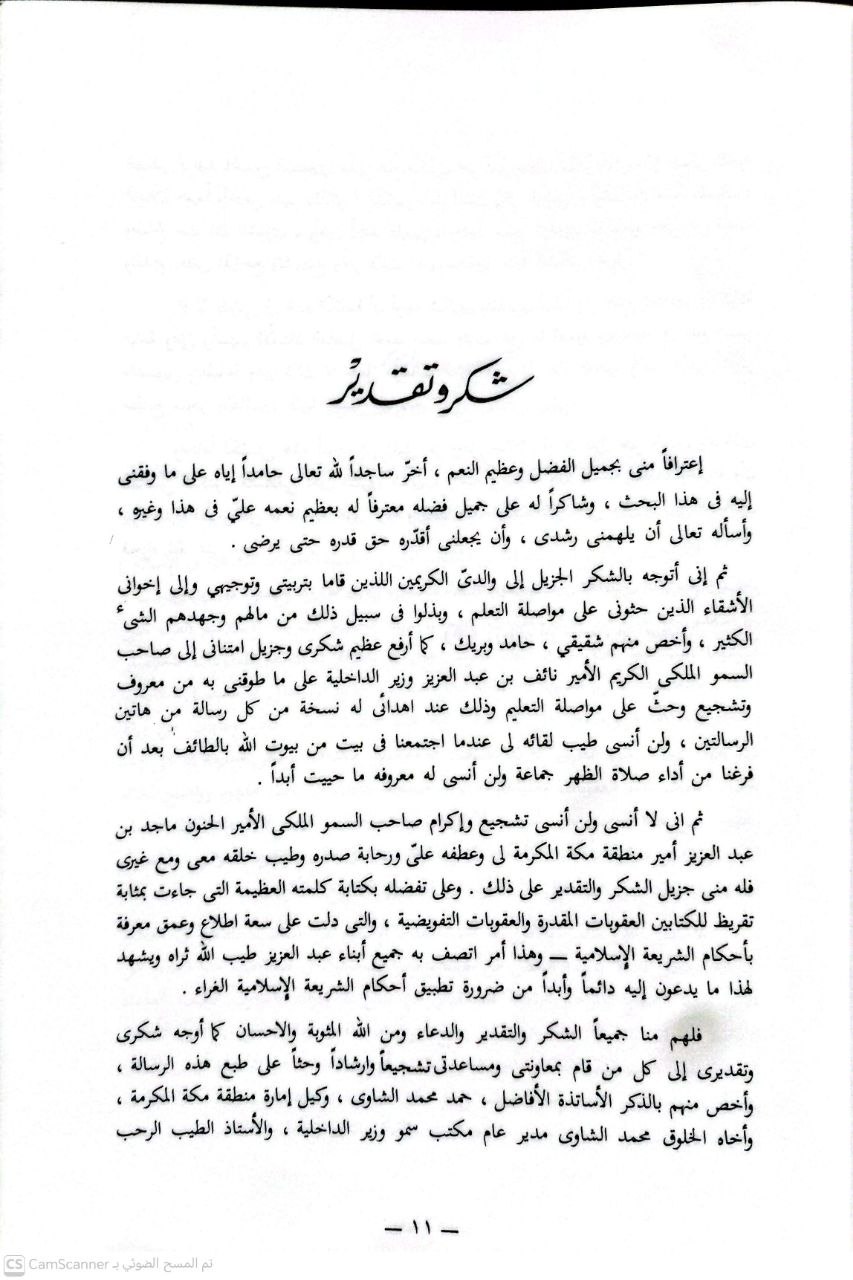 شكر وتقدير
إعترافاً منى بجميل الفضل وعظيم النعم ، أخرّ ساجداً لله تعالى حامداً إياه على ما وفقنى
إليه فى هذا البحث ، وشاكراً له على جميل فضله معترفاً له بعظيم نعمه عليّ فى هذا وغيره ،
وأسأله تعالى أن يلهمنى رشدى ، وأن يجعلنى أقدّره حق قدره حتى يرضى .
ثم إنى أتوجه بالشكر الجزيل إلى والدىّ الكريمين اللذين قاما بتربيتى وتوجيهي وإلى إخوانى
الأشقاء الذين حثونى على مواصلة التعلم ، وبذلوا فى سبيل ذلك من مالهم وجهدهم الشىء
الكثير ، وأخص منهم شقيقي ، حامد وبريك ، كما أرفع عظيم شكرى وجزيل امتنانى إلى صاحب
السمو الملكى الكريم الأمير نائف بن عبد العزيز وزير الداخلية على ما طوقنى به من معروف
وتشجيع وحثّ على مواصلة التعليم وذلك عند اهدائى له نسخة من كل رسالة من هاتين
الرسالتين ، ولن أنسى طيب لقائه لى عندما اجتمعنا فى بيت من بيوت الله بالطائف بعد أن
فرغنا من أداء صلاة الظهر جماعة ولن أنسى له معروفه ما حييت أبداً .
ثم انى لا أنسى ولن أنسى تشجيع وإكرام صاحب السمو الملكى الأمير الحنون ماجد بن
عبد العزيز أمير منطقة مكة المكرمة لى وعطفه علىّ ورحابة صدره وطيب خلقه معى ومع غيرى
فله منى جزيل الشكر والتقدير على ذلك . وعلى تفضله بكتابة كلمته العظيمة التى جاءت بمثابة
تقريظ للكتابين العقوبات المقدرة والعقوبات التفويضية ، والتى دلت على سعة اطلاع وعمق معرفة
بأحكام الشريعة الإسلامية — وهذا أمر اتصف به جميع أبناء عبد العزيز طيب الله ثراه ويشهد
لهذا ما يدعون إليه دائماً وأبداً من ضرورة تطبيق أحكام الشريعة الإسلامية الغراء .
فلهم منا جميعاً الشكر والتقدير والدعاء ومن الله المثوبة والاحسان كما أوجه شكرى
وتقديرى إلى كل من قام بمعاونتى ومساعدتى تشجيعاً وارشاداً وحثاً على طبع هذه الرسالة ،
وأخص منهم بالذكر الأساتذة الأفاضل ، حمد محمد الشاوى ، وكيل إمارة منطقة مكة المكرمة ،
وأخاه الخلوق محمد الشاوى مدير عام مكتب سمو وزير الداخلية ، والأستاذ الطيب الرحب
— ١١ —
CS CamScanner تم المسح الضوئي بـ